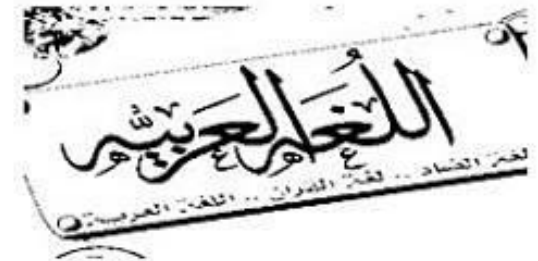 اللُغة العربيّة
لغة الضاد .. لغة القرآن .. اللغة العربية